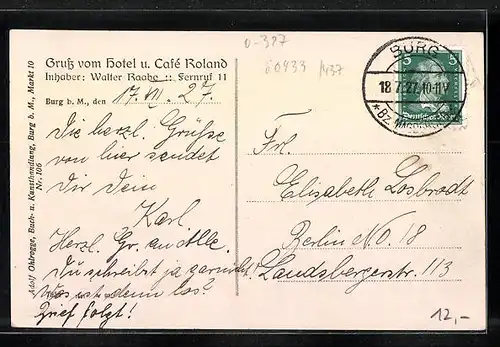 o-327
60933 1437
Gruß vom Hotel u. Café Roland
Inhaber: Walter Raabe :: Fernruf 11
Burg b. M., den 17. VII. 27.
Die herzl. Grüsse
von hier sendet
Dir Dein
Karl
Herzl. Gr. an Alle.
Du schreibst ja garnicht!
Was ist denn los?
Brief folgt!
Adolf Ohlrogge, Buch- u. Kunsthandlung, Burg b. M., Markt 10
Nr. 106
BURG
18.7.27.10-11V
*BZ. MAGDEBURG
5
Deutsches Reich
Frl.
Elisabeth Losbrodt
Berlin N.O. 18
Landsbergerstr. 113
12,-